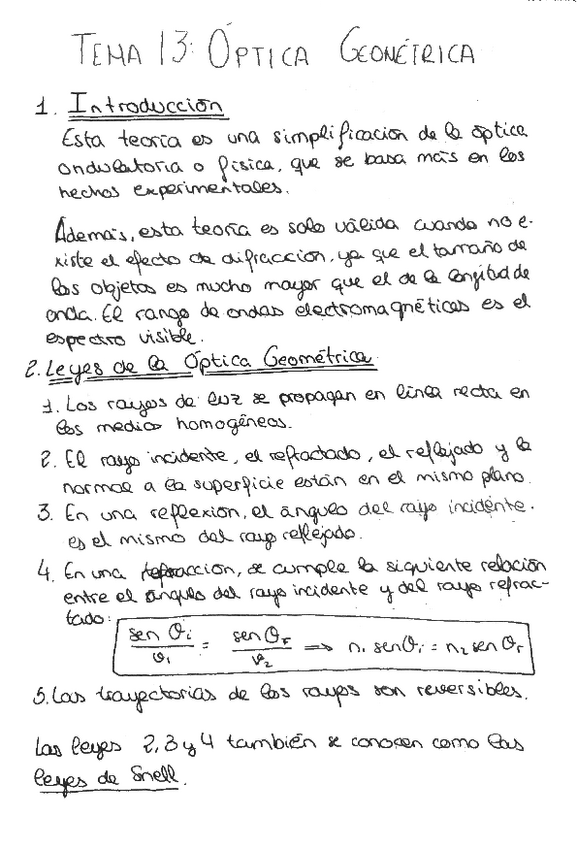 TEMA 13: ÓPTICA GEOMÉTRICA
1. Introducción
Esta teoría es una simplificación de la óptica
ondulatoria o física, que se basa más en los
hechos experimentales.
Además, esta teoría es solo válida cuando no e-
xiste el efecto de difracción, ya que el tamaño de
los objetos es mucho mayor que el de la longitud de
onda. El rango de ondas electromagnéticas es el
espectro visible.
2. Leyes de la Óptica Geométrica
1. Los rayos de luz se propagan en línea recta en
los medios homogéneos.
2. El rayo incidente, el refractado, el reflejado y la
normal a la superficie están en el mismo plano.
3. En una reflexión, el ángulo del rayo incidente.
es el mismo del rayo reflejado.
4. En una refracción, se cumple la siguiente relación
entre el ángulo del rayo incidente y del rayo refrac-
tado:
sen θi / v1 = sen θr / v2 ⇒ n1 sen θi = n2 sen θr
5. Las trayectorias de los rayos son reversibles.
Las leyes 2, 3 y 4 también se conocen como las
leyes de Snell.